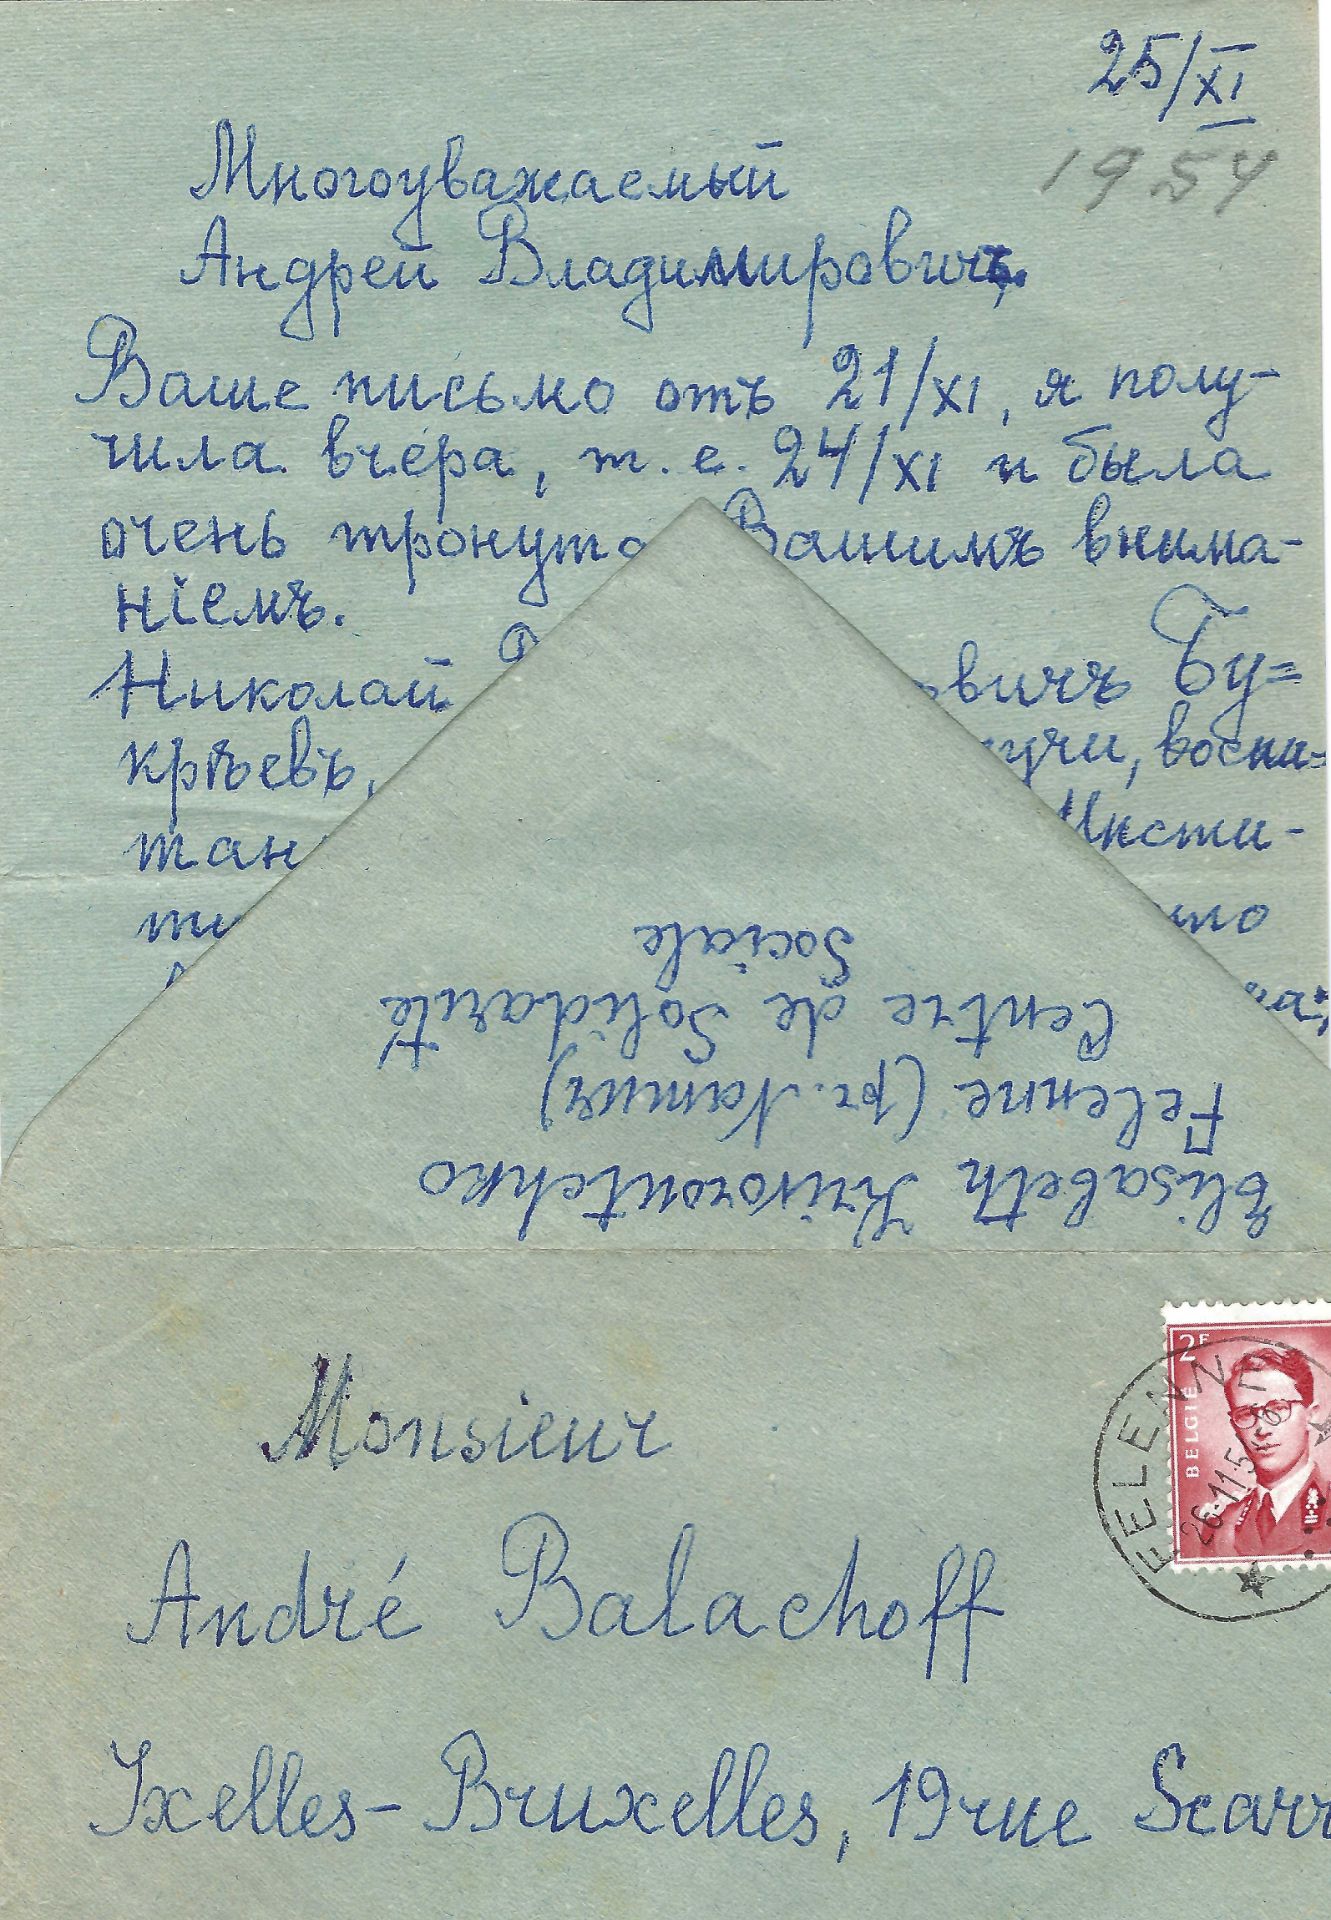 25/XI
1954
Многоуважаемый
Андрей Владимировичъ.
Ваше письмо отъ 21/XI, я полу-
чила вчера, т. е. 24/XI и была
очень тронута Вашимъ внима-
ніемъ.
Николай овичъ Бу=
крѣевъ, учи, воспи=
тан Инсти-
ту
Elisabeth Krivoroutchko
Felenne (pr. Namur)
Centre de Solidarité
Sociale
2F
BELGIE
FELENNE
26-11-54
Monsieur
André Balachoff
Ixelles-Bruxelles, 19 rue Scarr